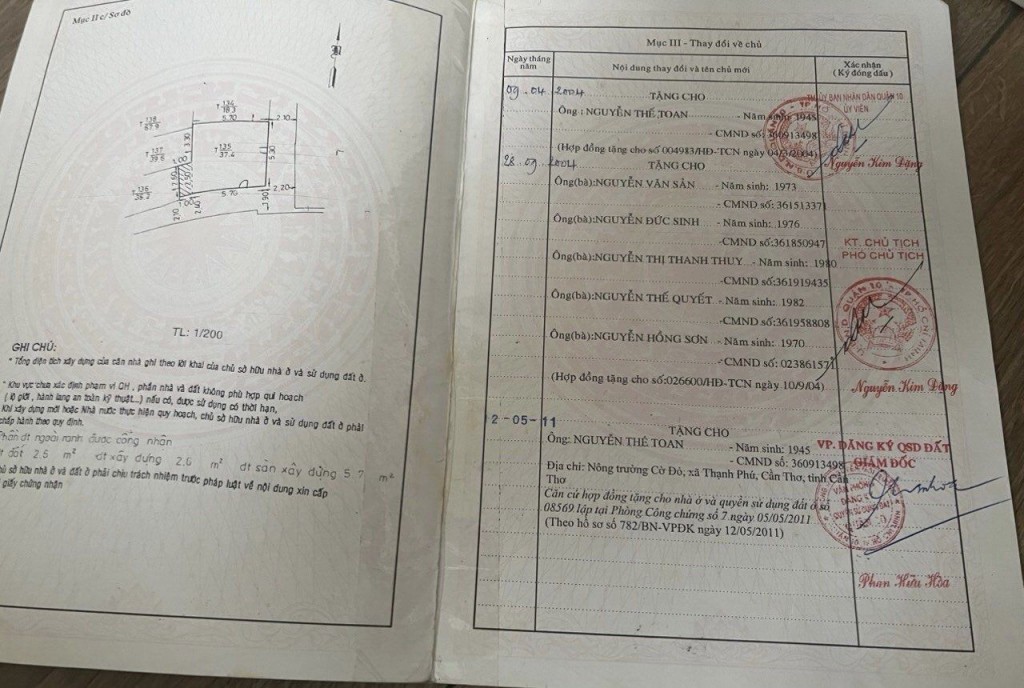 Mục II c/ Sơ đồ
T 134
18.3
5.70
2.10
T 138
67.9
3.30
T 137
39.6
T 135
37.4
5.30
T 136
38.2
5.70
2.20
2.10
TL: 1/200
GHI CHÚ:
* Tổng diện tích xây dựng của căn nhà ghi theo lời khai của chủ sở hữu nhà ở và sử dụng đất ở.
* Khu vực chưa xác định phạm vi QH, phần nhà và đất không phù hợp qui hoạch
( lộ giới, hành lang an toàn kỹ thuật...) nếu có, được sử dụng có thời hạn,
Khi xây dựng mới hoặc Nhà nước thực hiện quy hoạch, chủ sở hữu nhà ở và sử dụng đất ở phải
chấp hành theo quy định.
Phần dt ngoài ranh được công nhận
dt đất 2.6 m² dt xây dựng 2.6 m² dt sàn xây dựng 5.7 m²
chủ sở hữu nhà ở và đất ở phải chịu trách nhiệm trước pháp luật về nội dung xin cấp
giấy chứng nhận
Mục III - Thay đổi về chủ
Ngày tháng năm
Nội dung thay đổi và tên chủ mới
Xác nhận
(Ký đóng dấu)
09.04.2004
TẶNG CHO
ỦY BAN NHÂN DÂN QUẬN 10
ỦY VIÊN
Ông : NGUYỄN THẾ TOAN - Năm sinh: 1945
- CMND số: 360913498
(Hợp đồng tặng cho số 004983/HĐ-TCN ngày 04/3/2004)
Nguyễn Kim Đặng
28.09.2004
TẶNG CHO
Ông(bà):NGUYỄN VĂN SẲN - Năm sinh: 1973
- CMND số: 36151337
Ông(bà):NGUYỄN ĐỨC SINH - Năm sinh: 1976
-CMND số:361850947
KT. CHỦ TỊCH
PHÓ CHỦ TỊCH
Ông(bà):NGUYỄN THỊ THANH THUY - Năm sinh: 1980
-CMND số:361919435
Ông(bà):NGUYỄN THẾ QUYẾT - Năm sinh: 1982
-CMND số:361958808
Ông(bà):NGUYỄN HỒNG SƠN - Năm sinh: 1970
-CMND số: 023861571
(Hợp đồng tặng cho số:026600/HĐ-TCN ngày 10/9/04)
Nguyễn Kim Đặng
2-05-11
TẶNG CHO
Ông: NGUYỄN THẾ TOAN - Năm sinh: 1945
- CMND số: 360913498
VP. ĐĂNG KÝ QSD ĐẤT
GIÁM ĐỐC
Địa chỉ: Nông trường Cờ Đỏ, xã Thạnh Phú, Cần Thơ, tỉnh Cần
Thơ
Căn cứ hợp đồng tặng cho nhà ở và quyền sử dụng đất ở số
08569 lập tại Phòng Công chứng số 7 ngày 05/05/2011
(Theo hồ sơ số 782/BN-VPĐK ngày 12/05/2011)
Phan Hữu Hòa